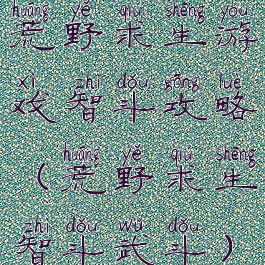 huāng yě qiú shēng yóu
荒野求生游
xì zhì dǒu gōng lüè
戏智斗攻略
huāng yě qiú shēng
（荒野求生
zhì dǒu wǔ dǒu
智斗武斗）